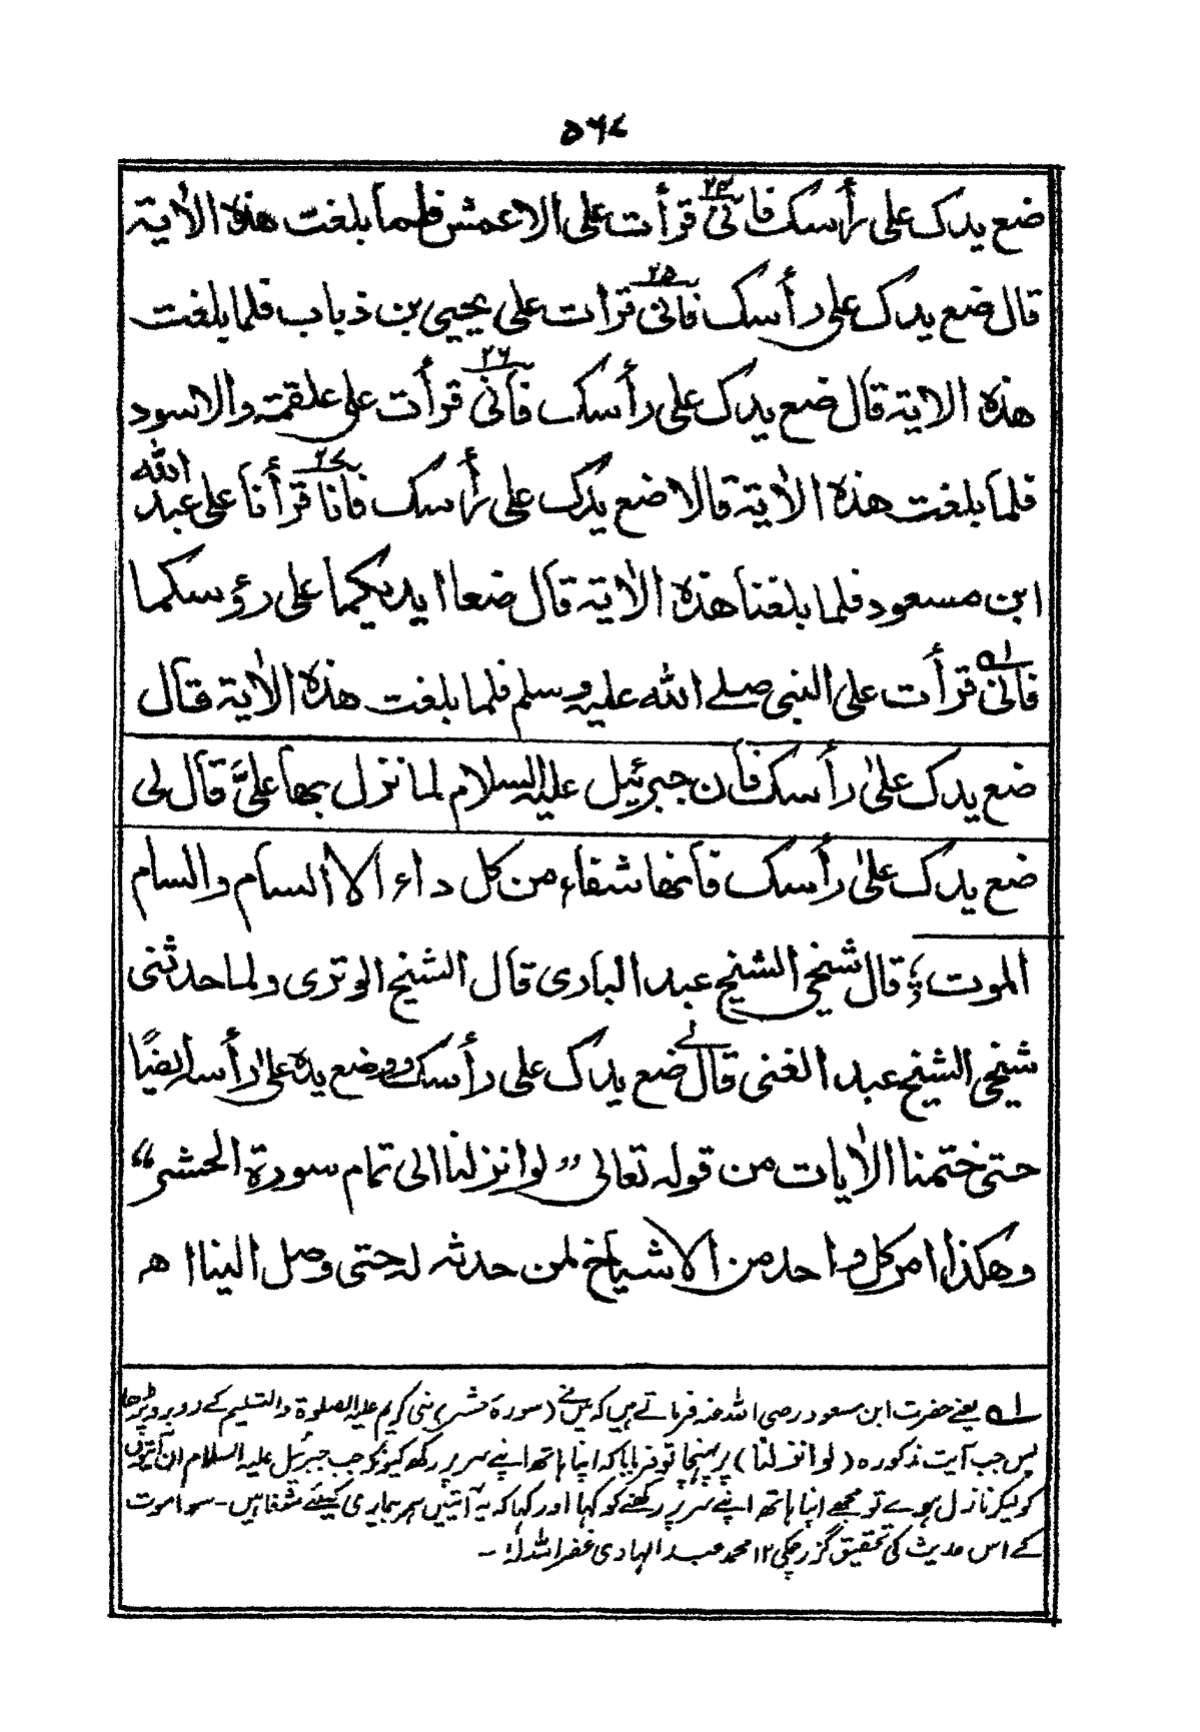 ۵۶۷
ضع يدك على رأسك فانى ۲۴ قرأت على الاعمش فلما بلغت هذه الاٰية
قال ضع يدك على رأسك فانى ۲۵ قرأت على يحيى بن ذباب فلما بلغت
هذه الاية قال ضع يدك على رأسك فانى ۲۶ قرأت على علقمة والاسود
فلما بلغت هذه الاٰية قالا ضع يدك على رأسك فانا ۲۷ قرأنا على عبد الله
ابن مسعود فلما بلغنا هذه الاٰية قال ضعا ايديكما على رؤسكما
فانى ۱ه قرأت على النبى صلے الله عليه وسلم فلما بلغت هذه الاٰية قال
ضع يدك علىٰ رأسك فان جبرئيل عليه السلام لما نزل بها علىَّ قال لى
ضع يدك علىٰ رأسك فانها شفاء من كل داء الا السام والسام
الموت ؛ قال شيخى الشيخ عبد البارى قال الشيخ الوترى ولما حدثنى
شيخى الشيخ عبد الغنى قال لے ضع يدك على رأسك ووضع يده على رأسه ايضًا
حتى ختمنا الاٰيات من قوله تعالى ”لو انزلنا الى تمام سورة الحشر“
وهكذا امر كل واحد من الاشياخ لمن حدثه له حتى وصل الينا اھ
۱ه یعنے حضرت ابن مسعود رضی اللہ عنہ فرماتے ہیں کہ میں نے (سورۂ حشر) نبی کریم علیہ الصلوۃ والتسلیم کے روبرو پڑھا
پس جب آیت مذکورہ (لو انزلنا) پر پہنچا تو فرمایا کہ اپنا ہاتھ اپنے سر پر رکھ کیونکہ جب جبرئیل علیہ السلام ان آیتوں
کو لیکر نازل ہوے تو مجھے اپنا ہاتھ اپنے سر پر رکھنے کو کہا اور کہا کہ یہ آیتیں ہر بیماری کیلئے شفا ہیں ۔ سوا موت
کے اس حدیث کی تحقیق گزر چکی ۱۲ محمد عبد الہادی غفر اللہ لہٗ ۔